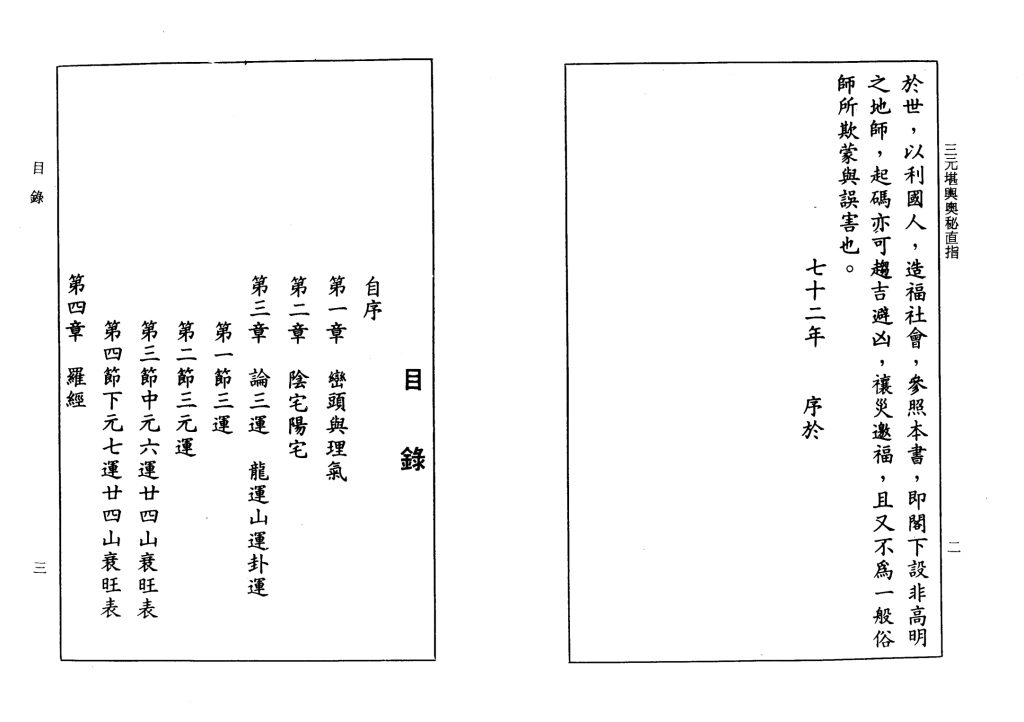 三元堪輿奧秘直指
二
於世，以利國人，造福社會，參照本書，即閣下設非高明
之地師，起碼亦可趨吉避凶，禳災邀福，且又不為一般俗
師所欺蒙與誤害也。
七十二年　序於
目錄
自序
第一章　巒頭與理氣
第二章　陰宅陽宅
第三章　論三運　龍運山運卦運
第一節三運
第二節三元運
第三節中元六運廿四山衰旺表
第四節下元七運廿四山衰旺表
第四章　羅經
目錄
三